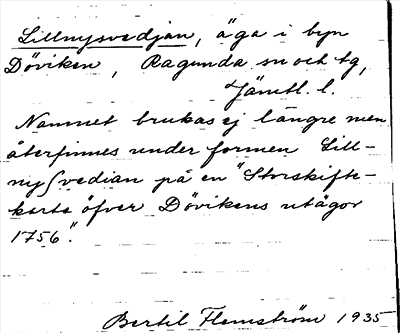 Lillnysvedjan, äga i byn
Döviken, Ragunda sn och tg,
Jämtl. l.
Namnet brukas ej längre men
återfinnes under formen Lill-
nyſvedian på en "Storskifte-
karta öfver Dövikens utägor
1756".
Bertil Flemström 1935